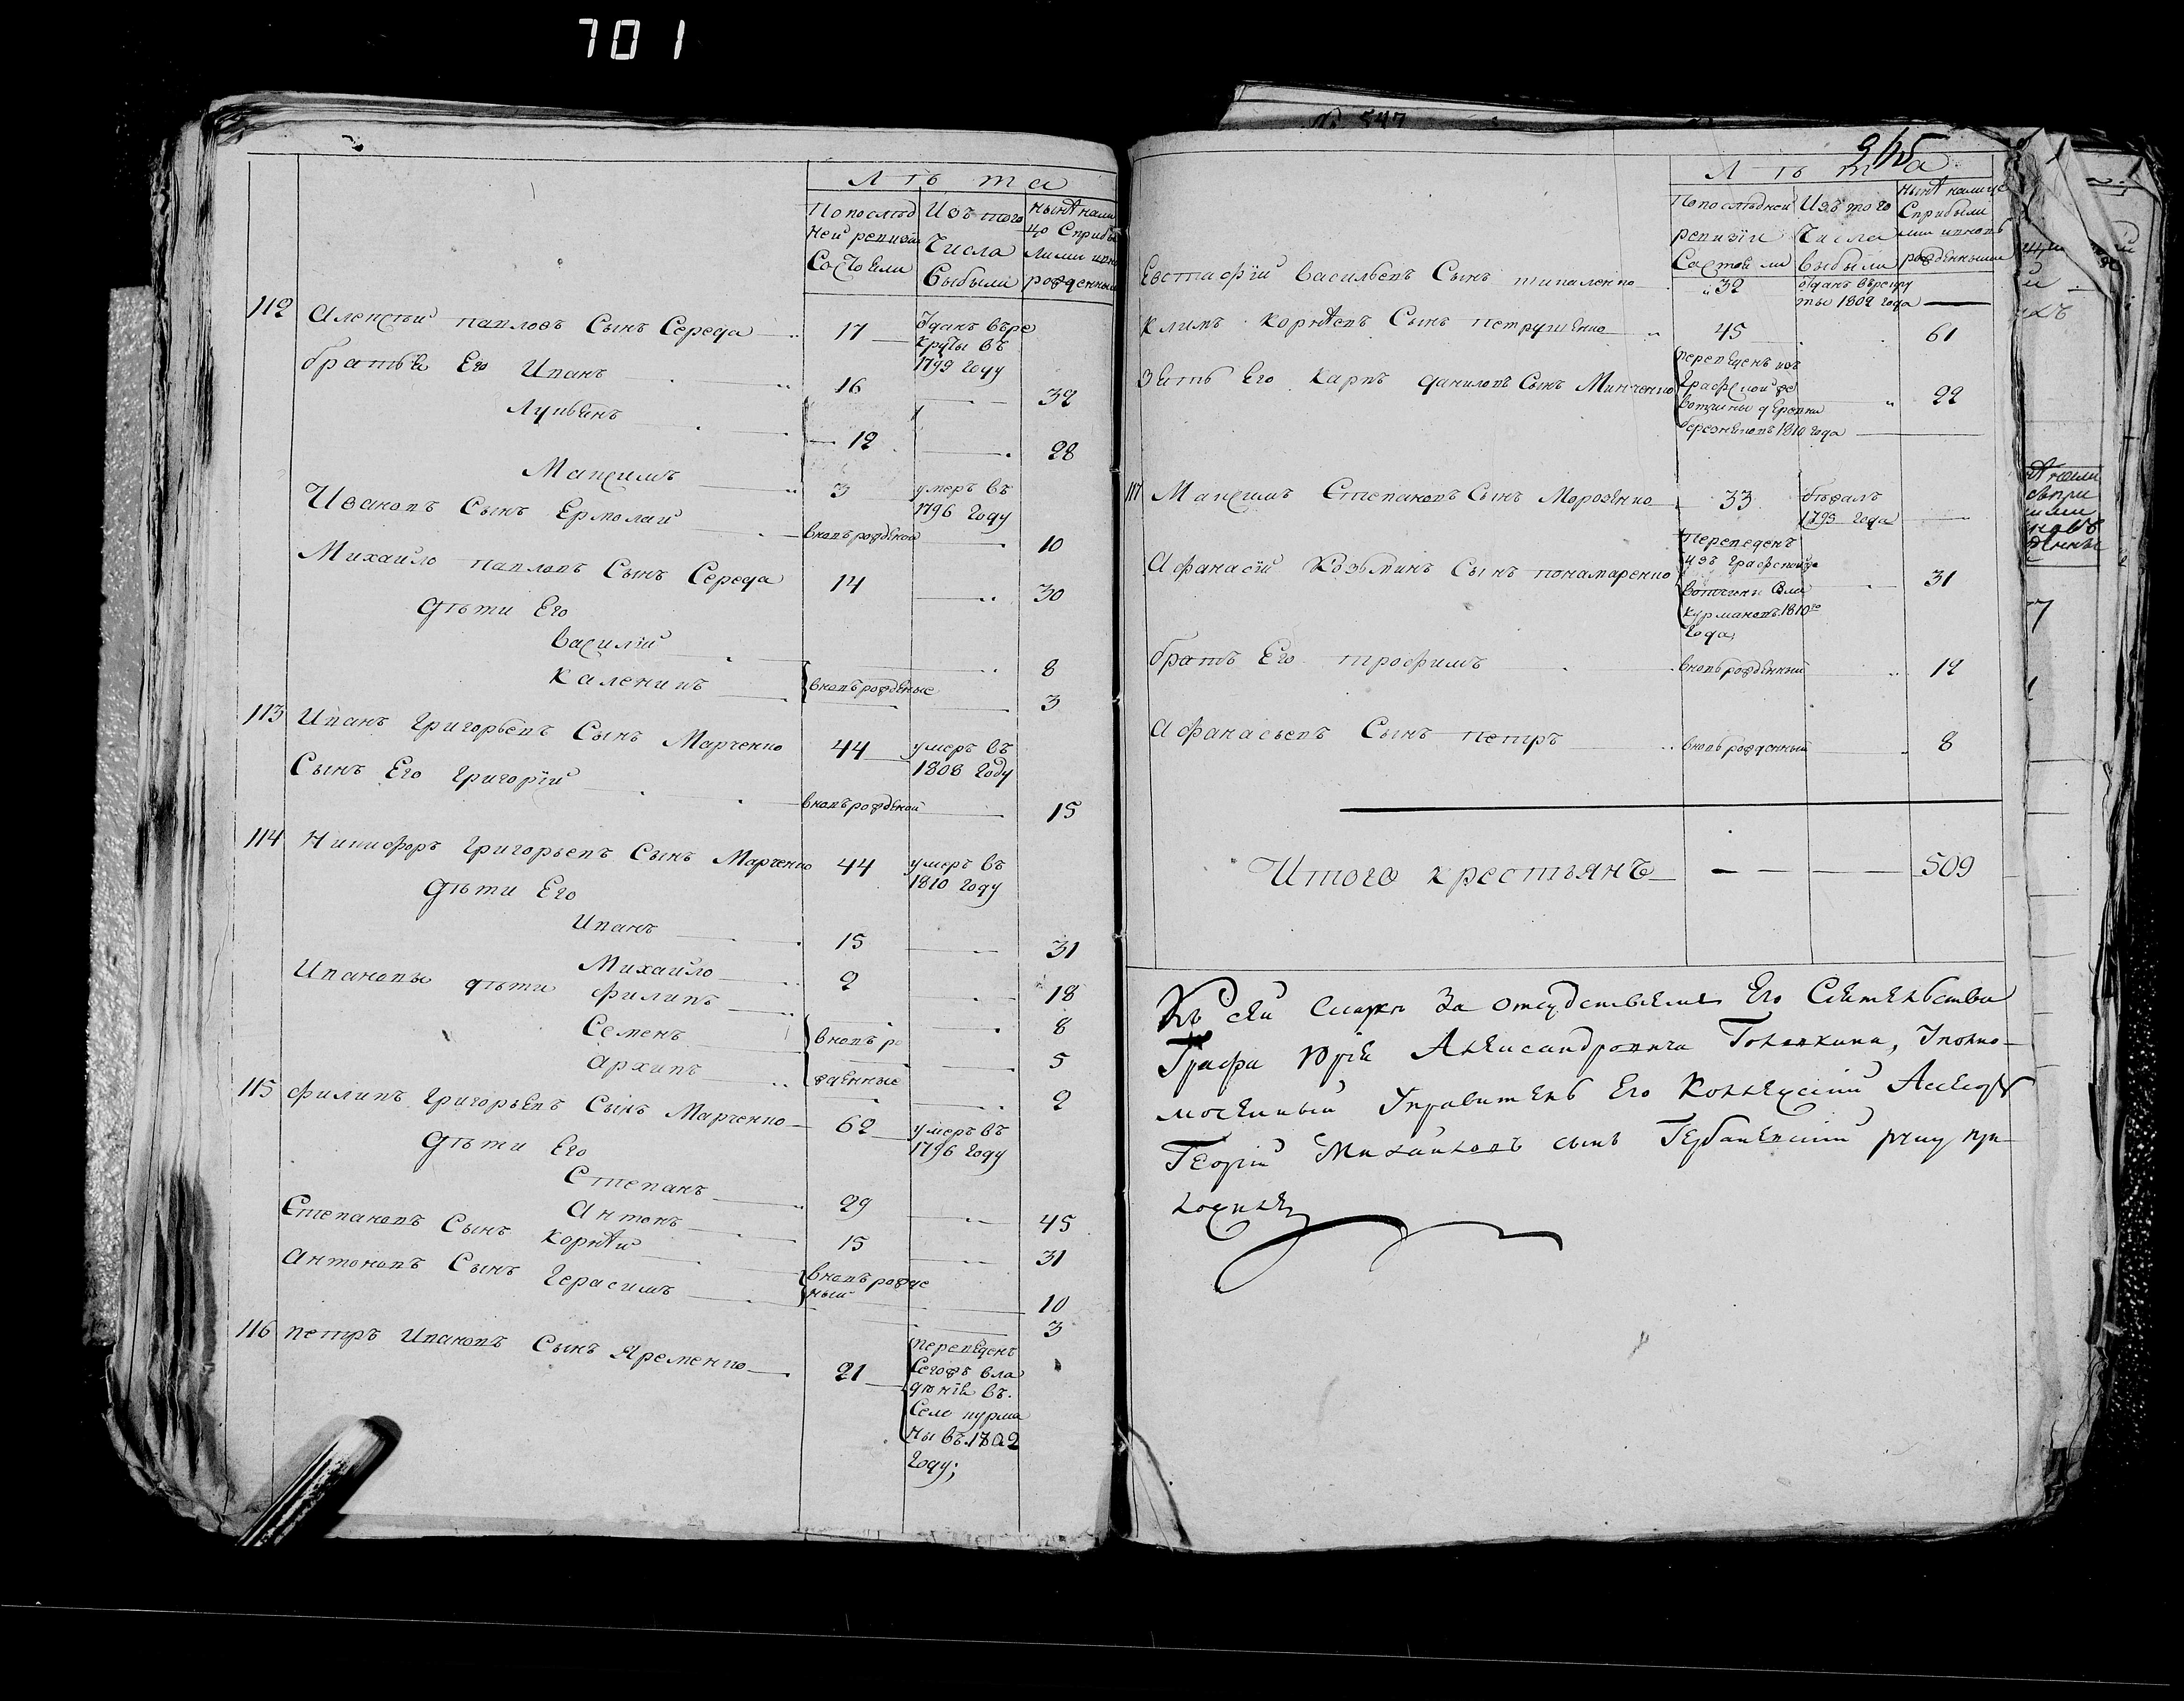 701
Лѣта
Попослѣд Изъ того нынѣ нали
ней ревизіи Числа цо Сприбы
Состояли Выбыли лыми ивно
рожденными
112 Алексѣй павловъ Сынъ Середа 17 Отданъ въре
круты въ
1799 году
братья Его Иванъ 16 32
Лукьянъ 12 28
Максимъ 3 умеръ въ
1796 году
Ивановъ Сынъ Ермолай вновърожденой 10
Михайло павловъ Сынъ Середа 14 30
дѣти Его
василій 8
каленикъ вновърожденые 3
113 Иванъ григорьевъ Сынъ Марченко 44 умеръ въ
1808 году
Сынъ Его григорій вновърожденой 15
114 Никифоръ григорьевъ Сынъ Марченко 44 умеръ въ
1810 году
дѣти Его
Иванъ 15 31
Михайло 2 18
Ивановы дѣти филипъ 8
Семенъ вновъ ро 5
архипъ жденные 2
115 филипъ григорьевъ Сынъ Марченко 62 умеръ въ
1796 году
дѣти Его
Степанъ 29 45
Антонъ 15 31
Степановъ Сынъ корнѣй вновърожде 10
Антоновъ Сынъ герасимъ ный 3
116 петръ Ивановъ Сынъ Яременко 21 переведенъ
Сегожъ вла
дѣнія въ
Село курма
ны въ 1802
году;
№ 547
Лѣта
Попослѣдней Изъ того нынѣ налице
ревизіи Числа Сприбылы
Состояли выбыли ми ивновъ
рожденными
Евстафій васильевъ Сынъ 32 отданъ върекру
ты 1802 года
климъ корнѣевъ Сынъ петрушенко 45 61
зять Его карпъ даниловъ Сынъ Минченко переведенъ изъ
графской же
вотчины деревни 22
1810 года
117 Максимъ Степановъ Сынъ Морозенко 33 бѣжалъ
1795 года
Афанасій Козьминъ Сынъ понамаренко Переведенъ
изъ графской же
вотчины Села 31
курмановъ 1810го
года,
братъ Его трофимъ вновърожденный 12
Афанасьевъ Сынъ петръ вновърожденный 8
Итого крестьянъ 509
Къ сей Сказки За отсудствіемъ Его Сіятельства
Графа Юрія Александровича Головкина, Уполно-
моченный Управитель Его Коллежскій Асесоръ
Георгій Михайловъ сынъ руку при
ложилъ